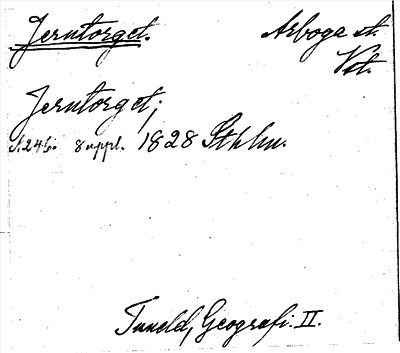 Jerntorget. Arboga st.
Vst.
Jerntorget;
s. 245. suppl. 1828 Sthlm.
Tuneld, Geografi. II.